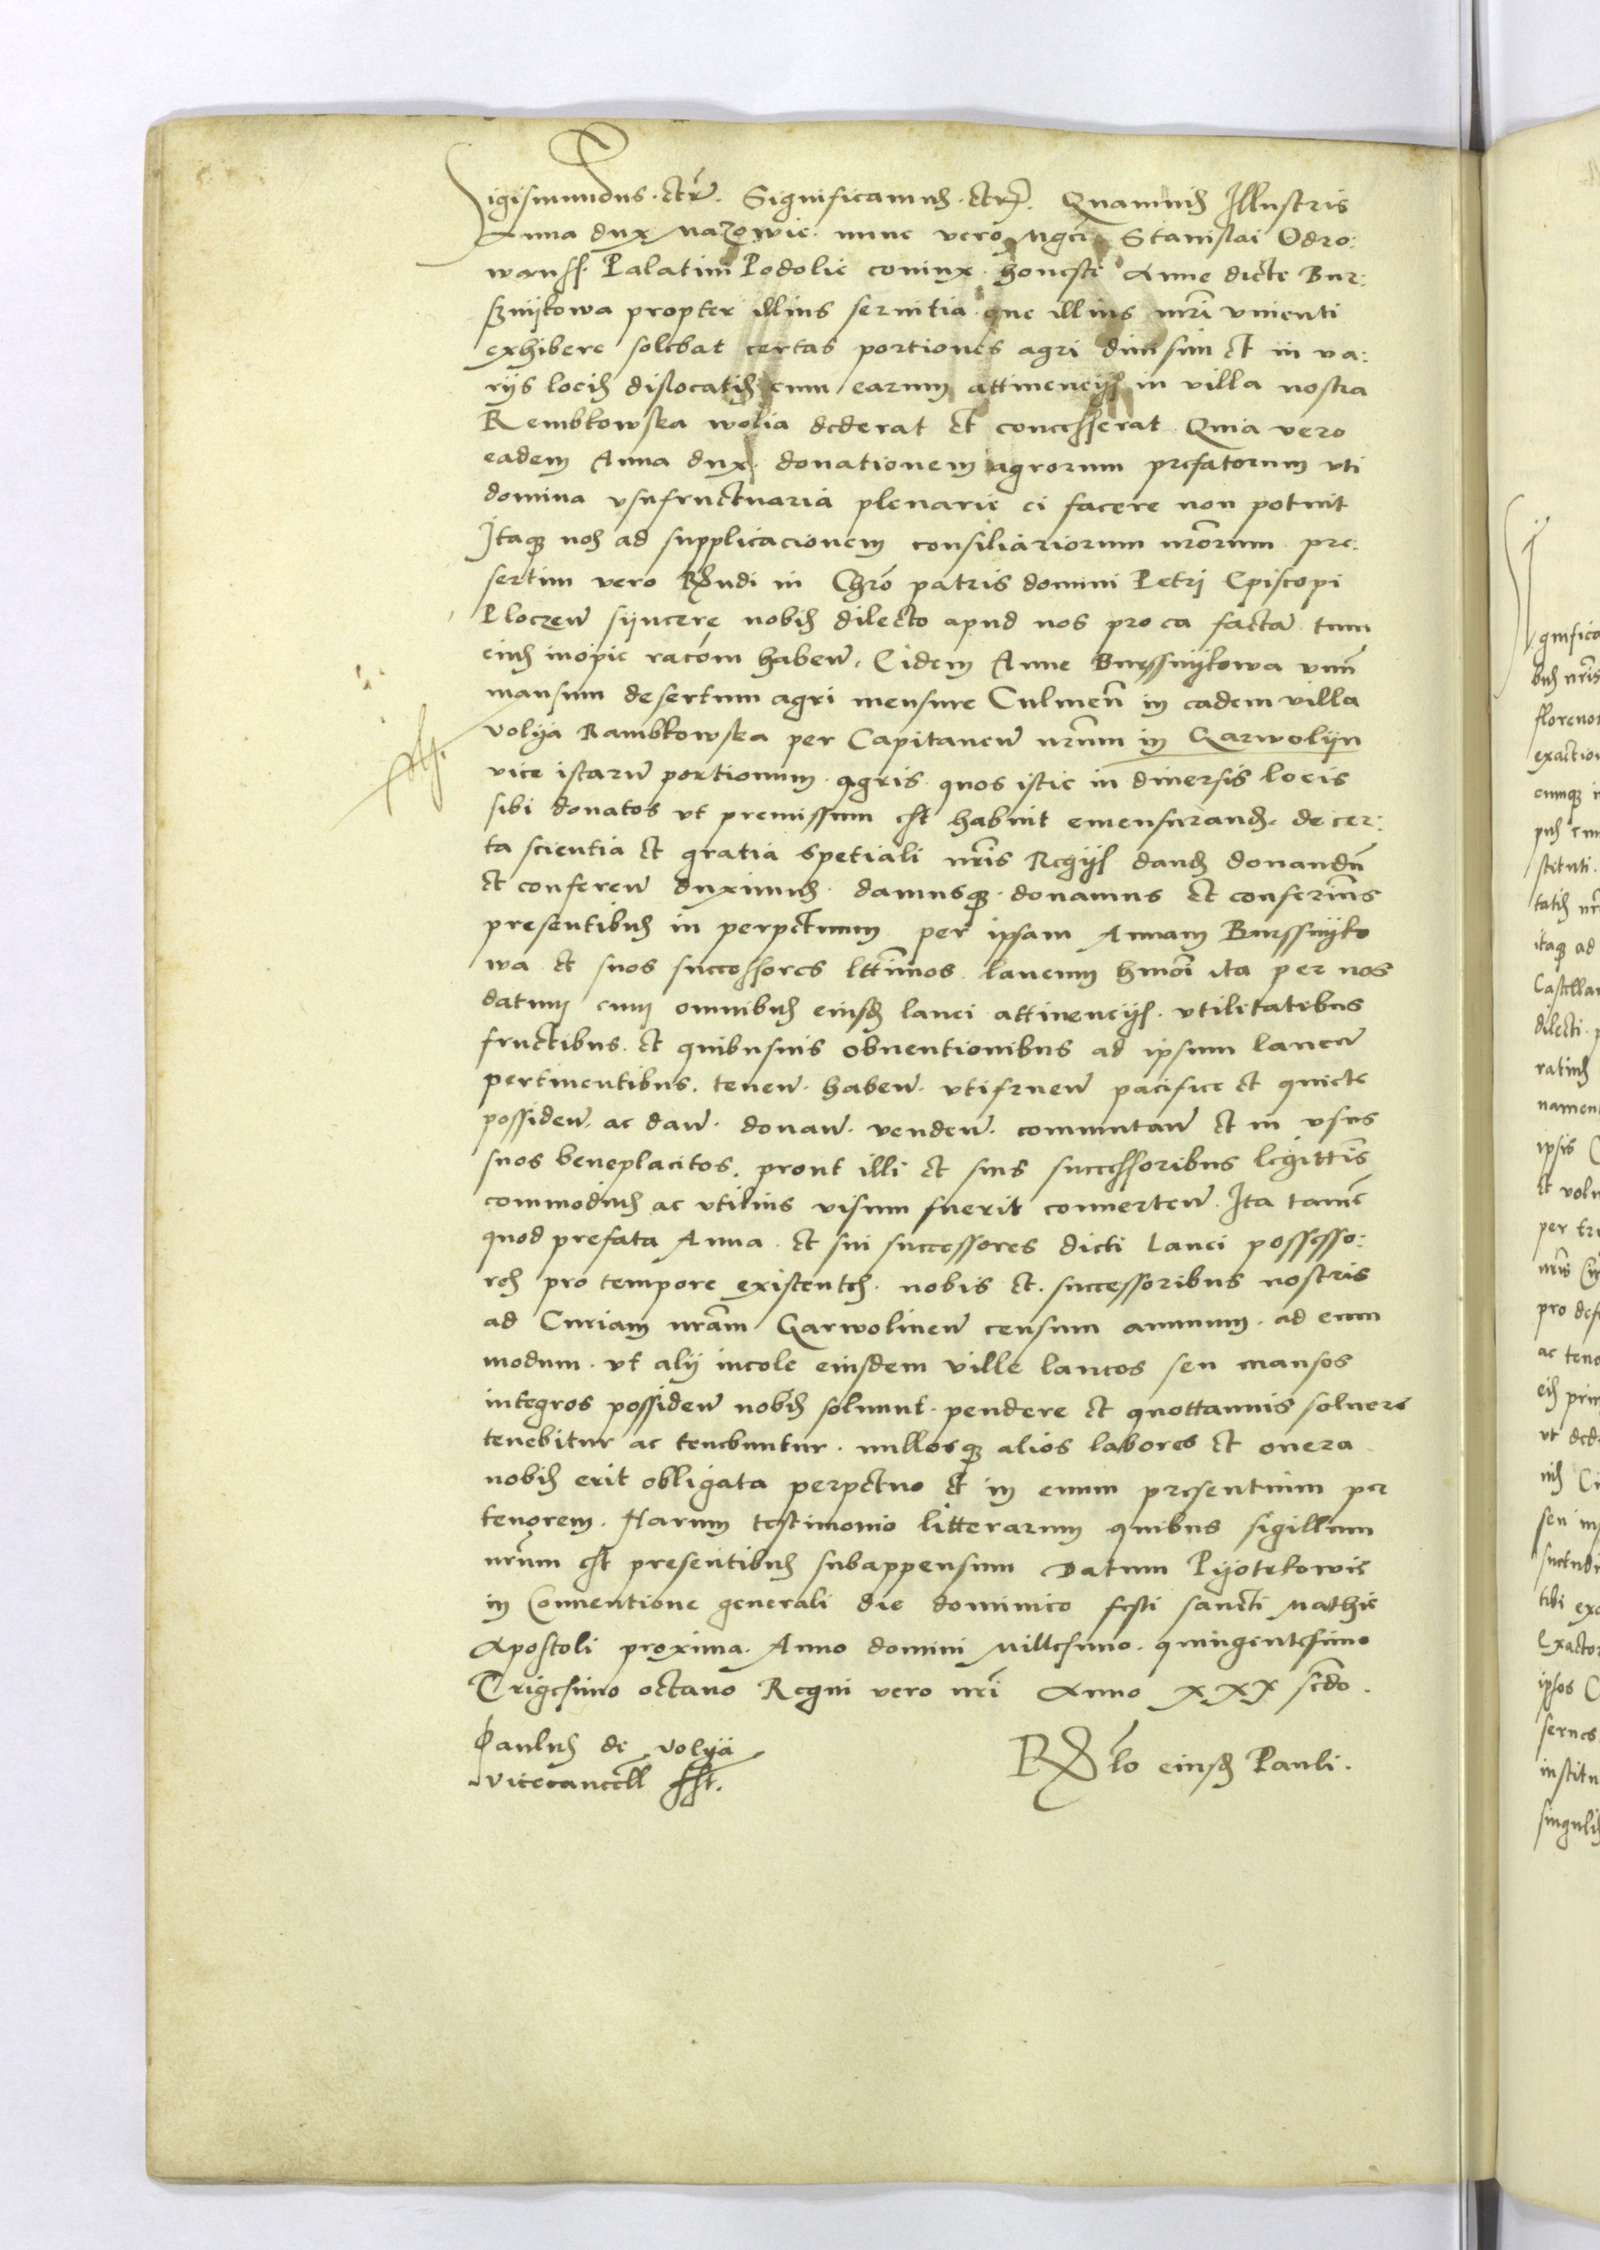 Sigismundus. etc̄. Significamus. etc̄. Quamuis Illustris
Anna dux Mazowie. nunc vero Mgci Stanislai Odro:
wanss. Palatini Podolie coniux. honeste Anne dicte Bur:
sznijkowa propter illius seruitia que illius mr̄i viuenti
exhibere solebat certas portiones agri diuisim et in va:
rijs locis dislocatis cum earum attinencijs in villa nostra
Rembkowska wolia dederat et concesserat Quia vero
eadem Anna dux. donationem agrorum prefatorum vti
domina vsufructuaria plenarie ei facere non potuit
Itaq nos ad supplicacionem consiliariorum nr̄orum pre:
sertim vero Rndi in Chro patris domini Petri Episcopi
Ploczen̄ syncere nobis dilecto apud nos pro ea factam tum
eius inopie rac̄om haben̄. Eidem Anne Burssnijkowa vnū
mansum desertum agri mensure Culmen̄ in eadem villa
volya Rambkowska per Capitaneū nr̄um in Garwolijn
vice istarū portionum agris quos istic in diuersis locis
sibi donatos vt premissum est habuit emensurand. de cer:
ta scientia et gratia spetiali nr̄is Regijs dand donandū
et conferen̄ duximus. damusq. donamus et conferim̄s
presentibus in perpetuum per ipsam Annam Burssnijko
wa et suos successores ltt̄imos laneum hmōi ita per nos
datum cum omnibus eiusd lanei attinencijs. vtilitatibus
fructibus. et quibusuis obuentionibus ad ipsum laneū
pertinentibus. tenen̄. haben̄. vtifruen̄ pacifice et quiete
possiden̄. ac dan̄. donan̄. venden̄. commutan̄ et in vsus
suos beneplacitos. prout illi et suis successoribus legittim̄s
commodius ac vtilius visum fuerit conuerten̄. Ita tamē
quod prefata Anna. et sui successores dicti lanei possesso:
res pro tempore existentes. nobis et. successoribus nostris
ad Curiam nr̄am Garwolinen̄ censum annuum. ad eum
modum. vt alij incole eiusdem ville laneos seu mansos
integros possiden̄ nobis soluunt. pendere et quottannis soluere
tenebitur ac tenebuntur. nullosq alios labores et onera
nobis erit obligata perpetuo et in euum presentium per
tenorem. Harum testimonio litterarum quibus sigillum
nr̄um est presentibus subappensum Datum Pijotrkowie
in Conuentione generali die dominico festi sancti Mathie
Apostoli proxima. Anno domini Millesimo. quingentesimo
Trigesimo octauo Regni vero nr̄i Anno XXX sc̄do.
Paulus de volya
vicecancell sst.
Rlo eiusd Pauli.